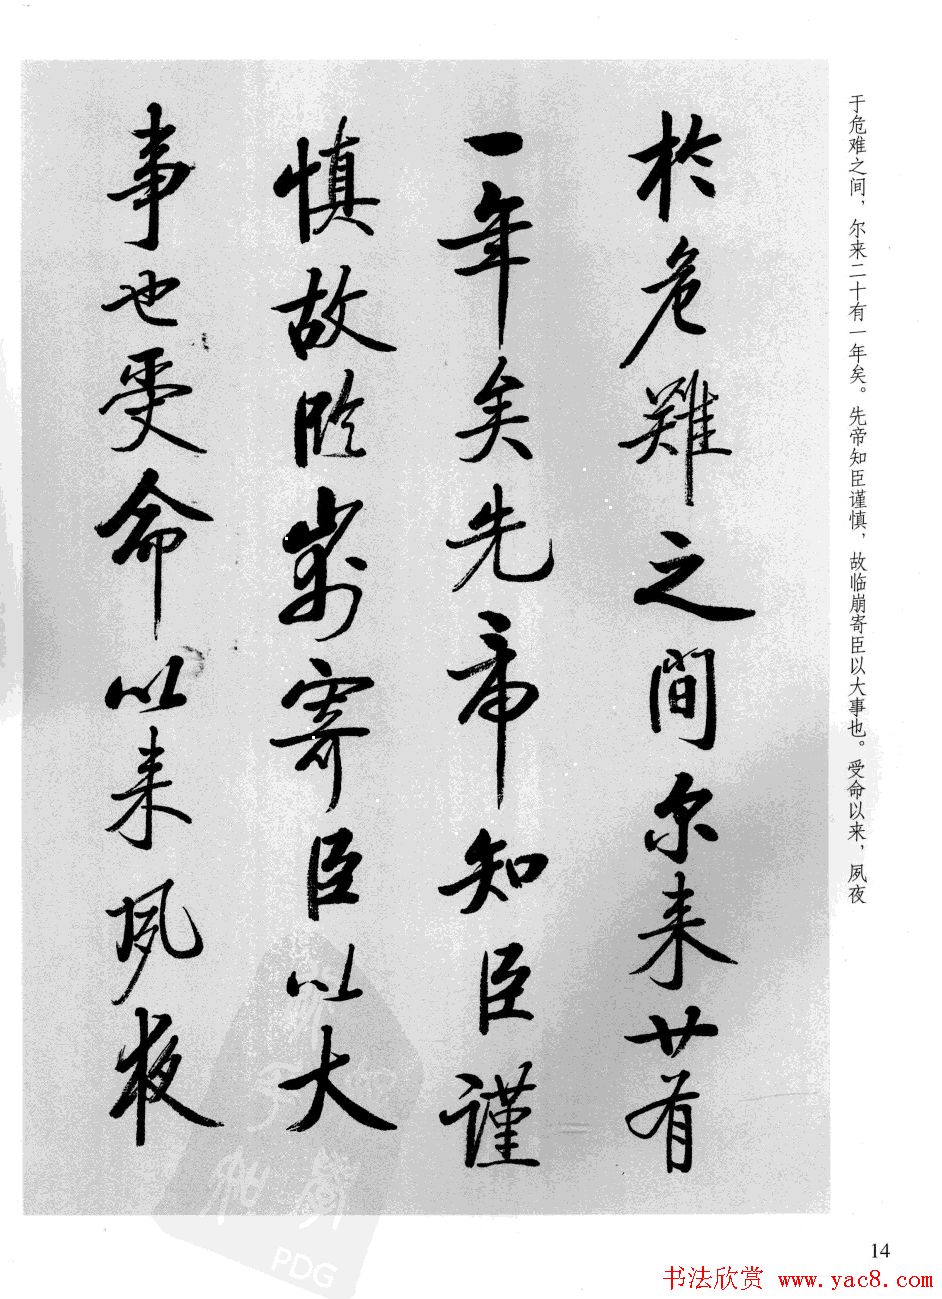 於危難之間尔来廿有
一年矣先帝知臣謹
慎故臨崩寄臣以大
事也受命以来夙夜
于危难之间，尔来二十有一年矣。先帝知臣谨慎，故临崩寄臣以大事也。受命以来，夙夜
PDG
14
书法欣赏 www.yac8.com